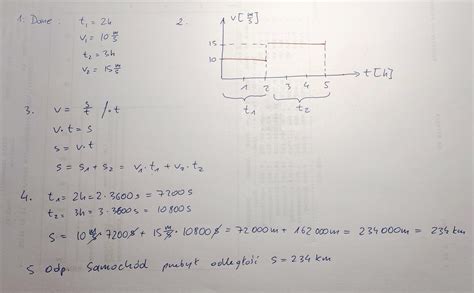 1. Dane: t₁ = 2h
v₁ = 10 m/s
t₂ = 3h
v₂ = 15 m/s
2.
v [m/s]
15
10
1 2 3 4 5 t [h]
t₁ t₂
3. v = s/t /·t
v·t = s
s = v·t
s = s₁ + s₂ = v₁·t₁ + v₂·t₂
4. t₁ = 2h = 2·3600s = 7200s
t₂ = 3h = 3·3600s = 10800s
s = 10 m/s · 7200s + 15 m/s · 10800s = 72000m + 162000m = 234000m = 234km
5 odp. Samochód przebył odległość s = 234km